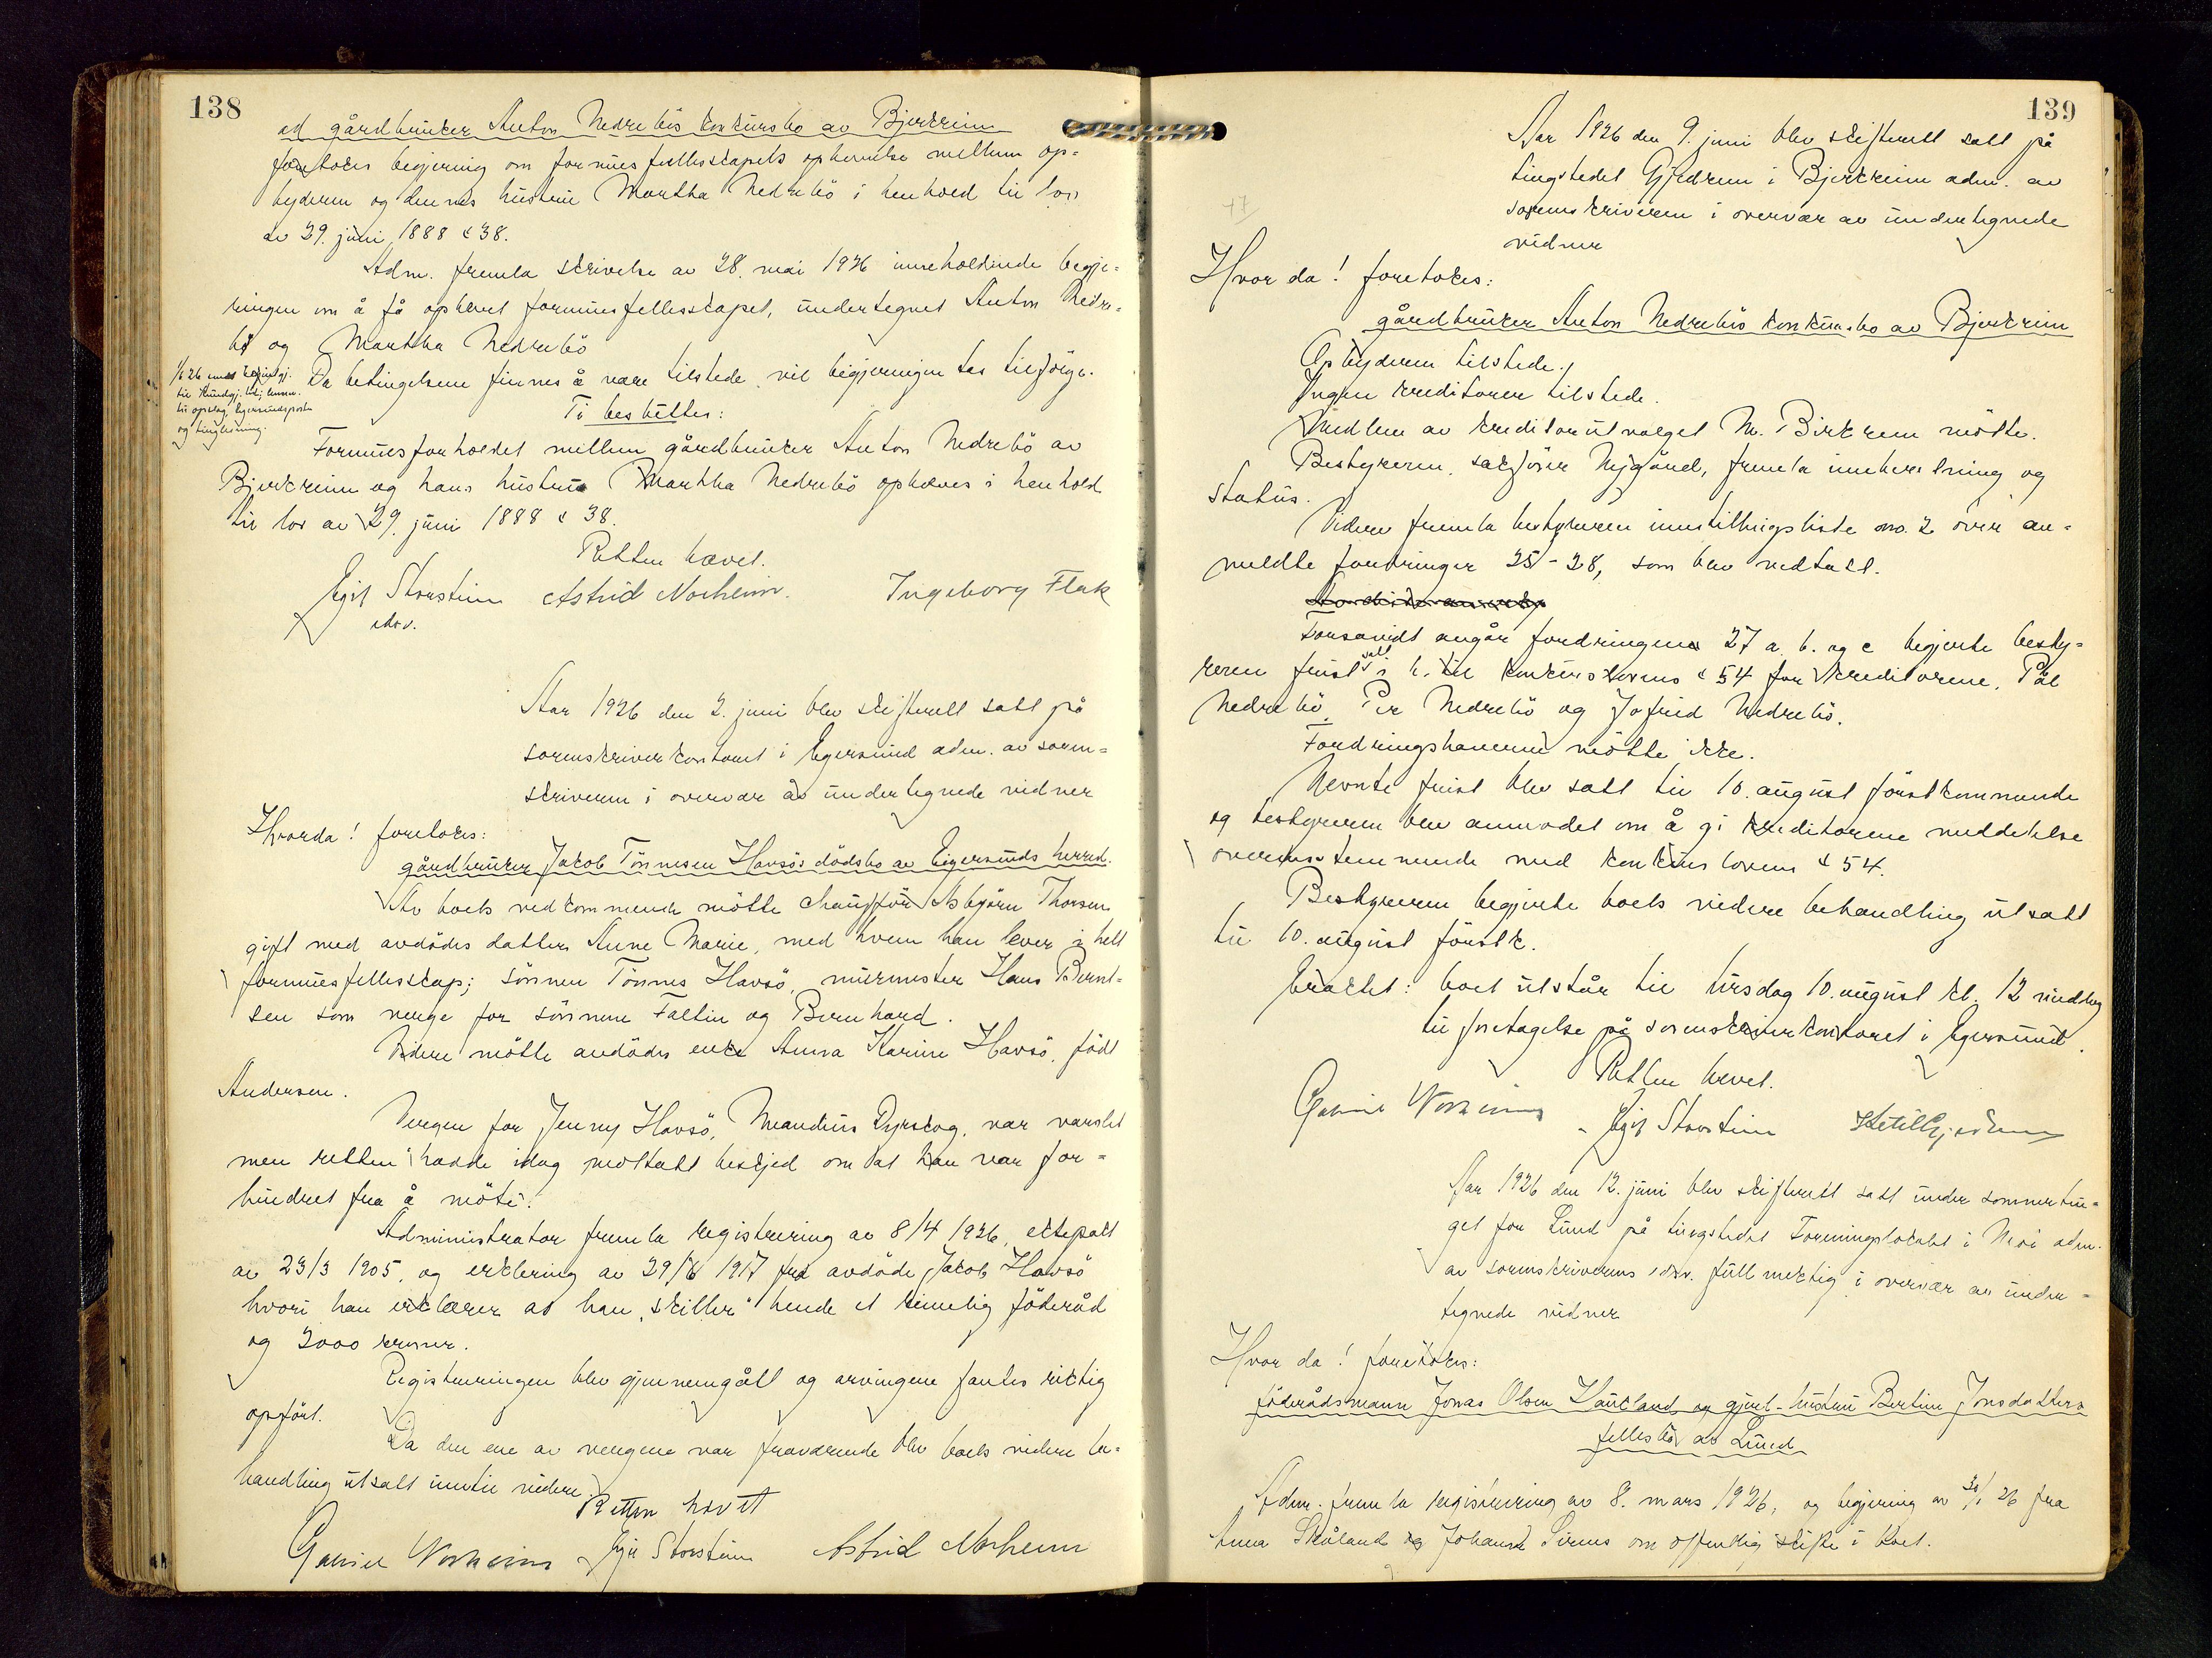 138
ad gårdbruker Anton Nedrebös konkursbo av Bjerkreim
foretokes begjering om formuesfellesskapets ophevelse mellem op=
byderen og dennes hustru Martha Nedrebö i henhold til lov
av 29. juni 1888 § 38.
Adm. fremla skrivelse av 28. mai 1926 inneholdende begjæ=
ringen om å få ophevet formuesfellesskapet, undertegnet Anton Nedre=
bö og Martha Nedrebö
Da betingelsene finnes å være tilstede, vil begjeringen tas tilfölge.
1/6 26
til kundgj.
til opslag, Egersundsposten
og tinglesning.
Ti besluttes:
Formuesforholdet mellem gårdbruker Anton Nedrebö av
Bjerkreim og hans hustru Martha Nedrebö opheves i henhold
til lov av 29. juni 1888 § 38.
Retten hævet.
Egil Storstein Astrid Norheim. Ingeborg Fluk
edsv.
Aar 1926 den 2. juni blev skifterett satt på
sorenskriverkontoret i Egersund adm. av soren=
skriveren i overvær av undertegnede vidner
Hvorda! foretokes:
gårdbruker Jakob Tönnesen Havsös dödsbo av Eigersunds herred.
Av boets vedkommende mötte chaufför Asbjörn Thorsen
gift med avdödes datter Anne Marie, med hvem han lever i helt
formuesfellesskap; sönnen Tönnes Havsö, murmester Hans Bernt=
sen som verge for sönnene Faltin og Bernhard.
Videre mötte avdödes enke Anna Karine Havsö, födt
Andersen.
Vergen for Jenny Havsö, Mandius Dyrskog, var varslet
men retten hadde idag mottatt beskjed om at han var for=
hindret fra å möte.
Administrator fremla registrering av 8/4 1926, ektepakt
av 23/3 1905, og erklering av 29/6 1917 fra avdöde Jakob Havsö
hvori han erklærer at han "skiller" hende et rimelig föderåd
og 2000 kroner.
Registreringen blev gjennemgått og arvingene fantes riktig
opfört.
Da den ene av vergene var fraværende blev boets videre be=
handling utsatt inntil videre.
Retten hævet
Gabriel Norheim Egil Storstein Astrid Norheim
139
Aar 1926 den 9. juni blev skifterett satt på
tingstedet Gjedrem i Bjerkreim adm. av
sorenskriveren i overvær av undertegnede
vidner
17
Hvor da! foretokes:
gårdbruker Anton Nedrebös konkursbo av Bjerkreim
Opbyderen tilstede.
Ingen kreditorer tilstede.
Medlem av kreditorutvalget M. Birkrem mötte.
Bestyreren, sakförer Nygånd, fremla innberetning og
status.
Videre fremla bestyreren innstillingsliste no. 2 over an=
meldte fordringer 25-28, som blev vedtatt.
Forsåvidt angår fordringene 27 a. b. og c begjerte besty=
reren frist satt i h. til konkurslovens § 54 for kreditorene, Pål
Nedrebö, Per Nedrebö og Jofrid Nedrebö.
Fordringshaverne mötte ikke.
Nevnte frist blev satt til 10. august förstkommende
og bestyreren blev anmodet om å gi kreditorene meddelelse
overensstemmende med konkurslovens § 54.
Bestyreren begjerte boets videre behandling utsatt
til 10. august förstk.
Eraktet: boet utstår til tirsdag 10. august kl. 12 middag
til foretagelse på sorenskriverkontoret i Egersund.
Retten hævet.
Gabriel Norheim Egil Storstein Ketil Gjedrem
Aar 1926 den 12. juni blev skifterett satt under sommertin=
get for Lund på tingstedet Foreningslokalet i Moi adm.
av sorenskriverens edsv. fullmektig i overvær av under=
tegnede vidner
Hvor da! foretokes:
föderådsmann Jonas Olsen Haukland og gjenl. hustru Bertine Jonsdatters
fellesbo av Lund
Adm. fremla registrering av 8. mars 1926, og begjering av 30/1 26 fra
Anna Skåland og Johanne Sirnes om offentlig skifte i boet.